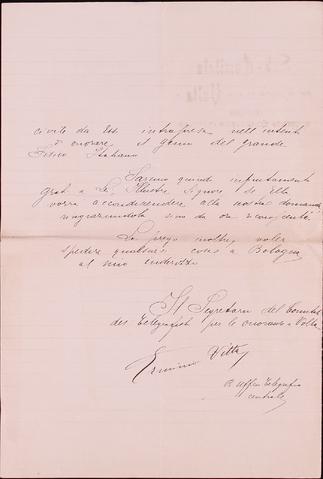 civile da Essi intrapresa nell'intento
di onorare il genio del grande
Fisico Italiano
Saremo quindi infinitamente
grati a Lei Illustre Signore se Ella
vorrà accondiscendere alla nostra domanda
ringraziandola sino da ora
La prego inoltre voler
spedire qualsiasi cosa a Bologna
al mio indirizzo
Il Segretario del Comitato
dei Telegrafisti per le onoranze a Volta
Vitta
R. Ufficio Telegrafico
centrale